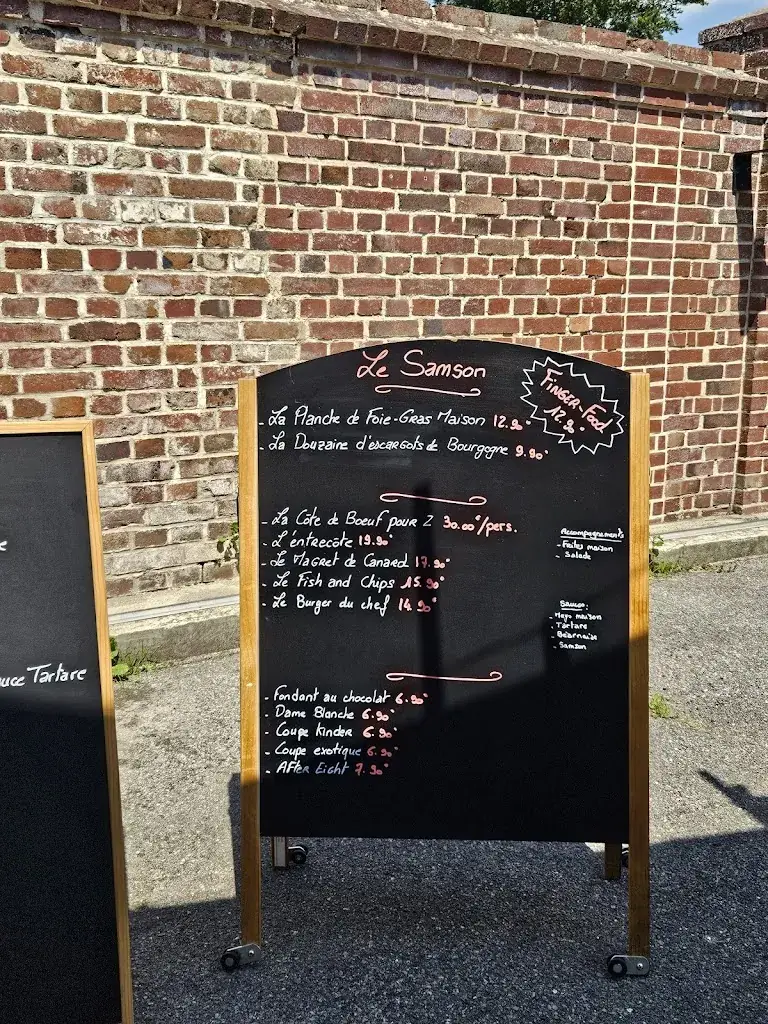 Le Samson
Finger-Food
12.90
- La Planche de Foie-Gras Maison 12.90€
- La Douzaine d'escargots de Bourgogne 9.90€
- La Côte de Boeuf pour 2 30.00€/pers.
- L'entrecôte 19.90€
- Le Magret de Canard 17.90€
- Le Fish and Chips 15.90€
- Le Burger du chef 14.90€
Accompagnements
- Frites maison
- Salade
Sauces:
- Mayo maison
- Tartare
- Béarnaise
- Samson
- Fondant au chocolat 6.90€
- Dame Blanche 6.90€
- Coupe Kinder 6.90€
- Coupe exotique 6.90€
- After Eight 7.90€
Tartare